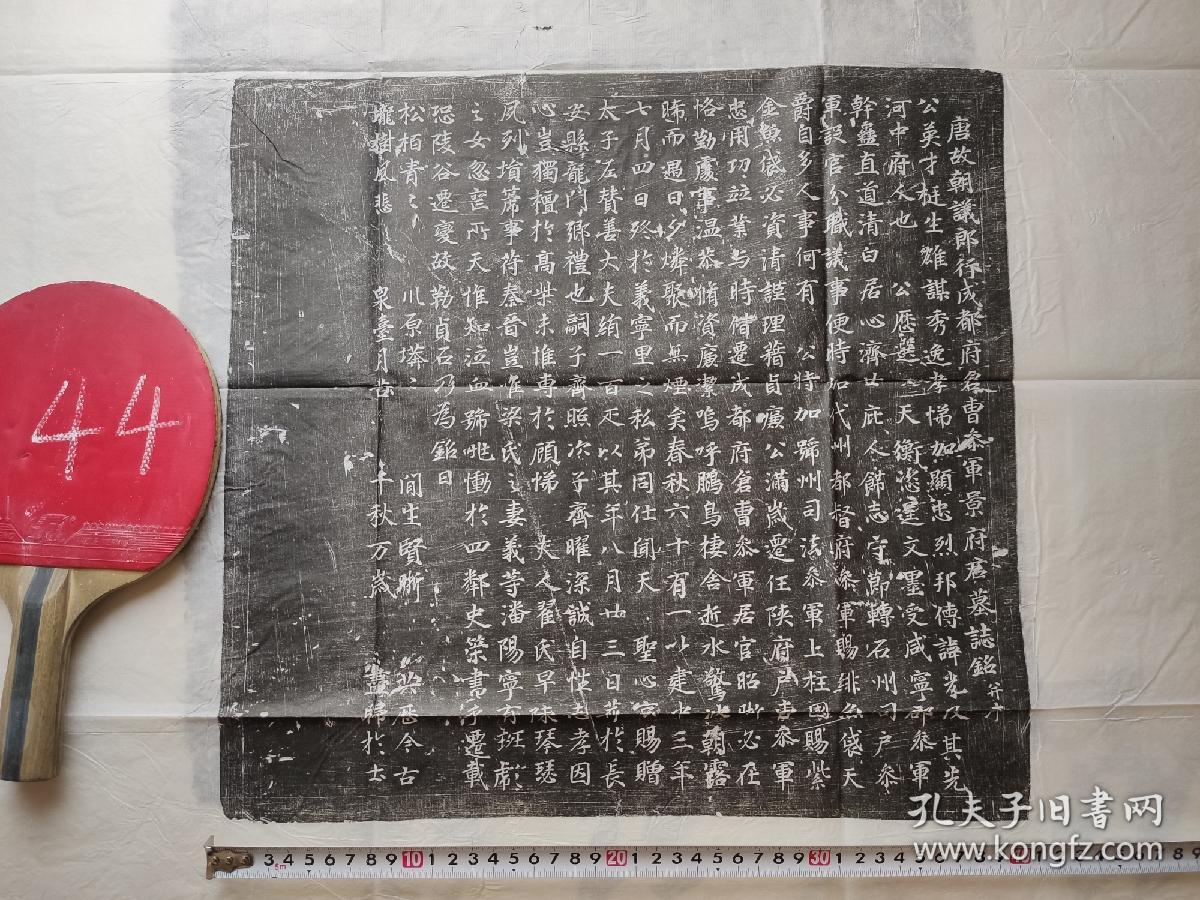 唐故朝議郎行成都府倉曹叅軍景府君墓誌銘并序
公英才挺生雄謀秀逸孝悌加顯忠烈邦傳諱光及其先
河中府人也 公歷選 天衡 文墨受咸寧郡叅軍
幹蠱直道清白居心濟 庇人飾志守節轉石州司戶叅
軍設官分職議事便時 代州都督府 軍賜緋魚袋天
爵自多人事何有 公特加號州司法叅軍上柱國賜紫
金魚袋必資清謹理藉貞 公滿歲遷任陝府戶曹叅軍
忠用功立業与時偕遷成都府倉曹叅軍居官昭 必在
恪勤處事温恭脩資廉潔嗚呼鵬鳥棲舍逝水驚 朝露
晞而遇日夕 歌而無煙矣春秋六十有一以建中三年
七月四日終於義寧里之私弟同仕聞天 聖心 賜贈
太子左贊善大夫絹一百疋以其年八月廿三日 於長
安縣龍門 禮也嗣子齊照次子齊曜深誠自性 孝因
心豈獨檀於高柴未惟専於顧悌 夫人翟氏早陳琴瑟
夙列 席事符秦晉豈 梁氏之妻義等潘陽寧有班
之女忽 所天惟知泣血 慟於四鄰史 書 遷載
恐陵谷遷變故勒貞石乃為銘曰
松柏青〻 川原塨〻 間生賢 英 今古
壠樹風悲 泉臺月苦 千秋万歲 歸於土
44
孔夫子旧書网
www.kongfz.com
5m
3 4 5 6 7 8 9 10 1 2 3 4 5 6 7 8 9 20 1 2 3 4 5 6 7 8 9 30 1 2 3 4 5 6 7 8